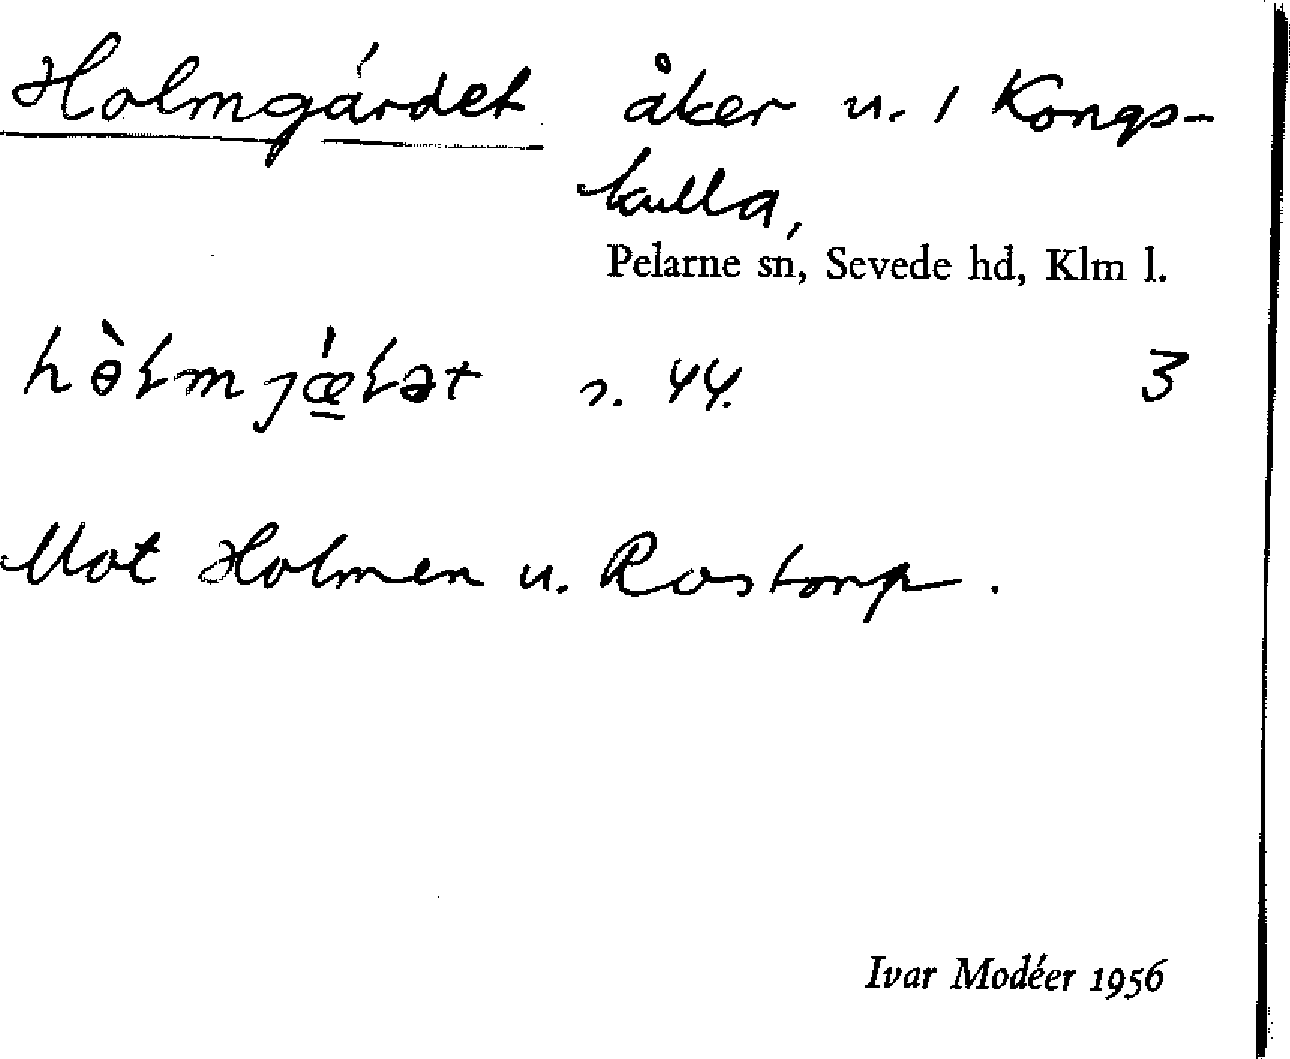 Holmgärdet åker u. 1 Kongs-
kulla,
Pelarne sn, Sevede hd, Klm l.
hə̀ɫmjǽ̱ɫət s. 44. 3
Mot Holmen u. Rostorp.
Ivar Modéer 1956